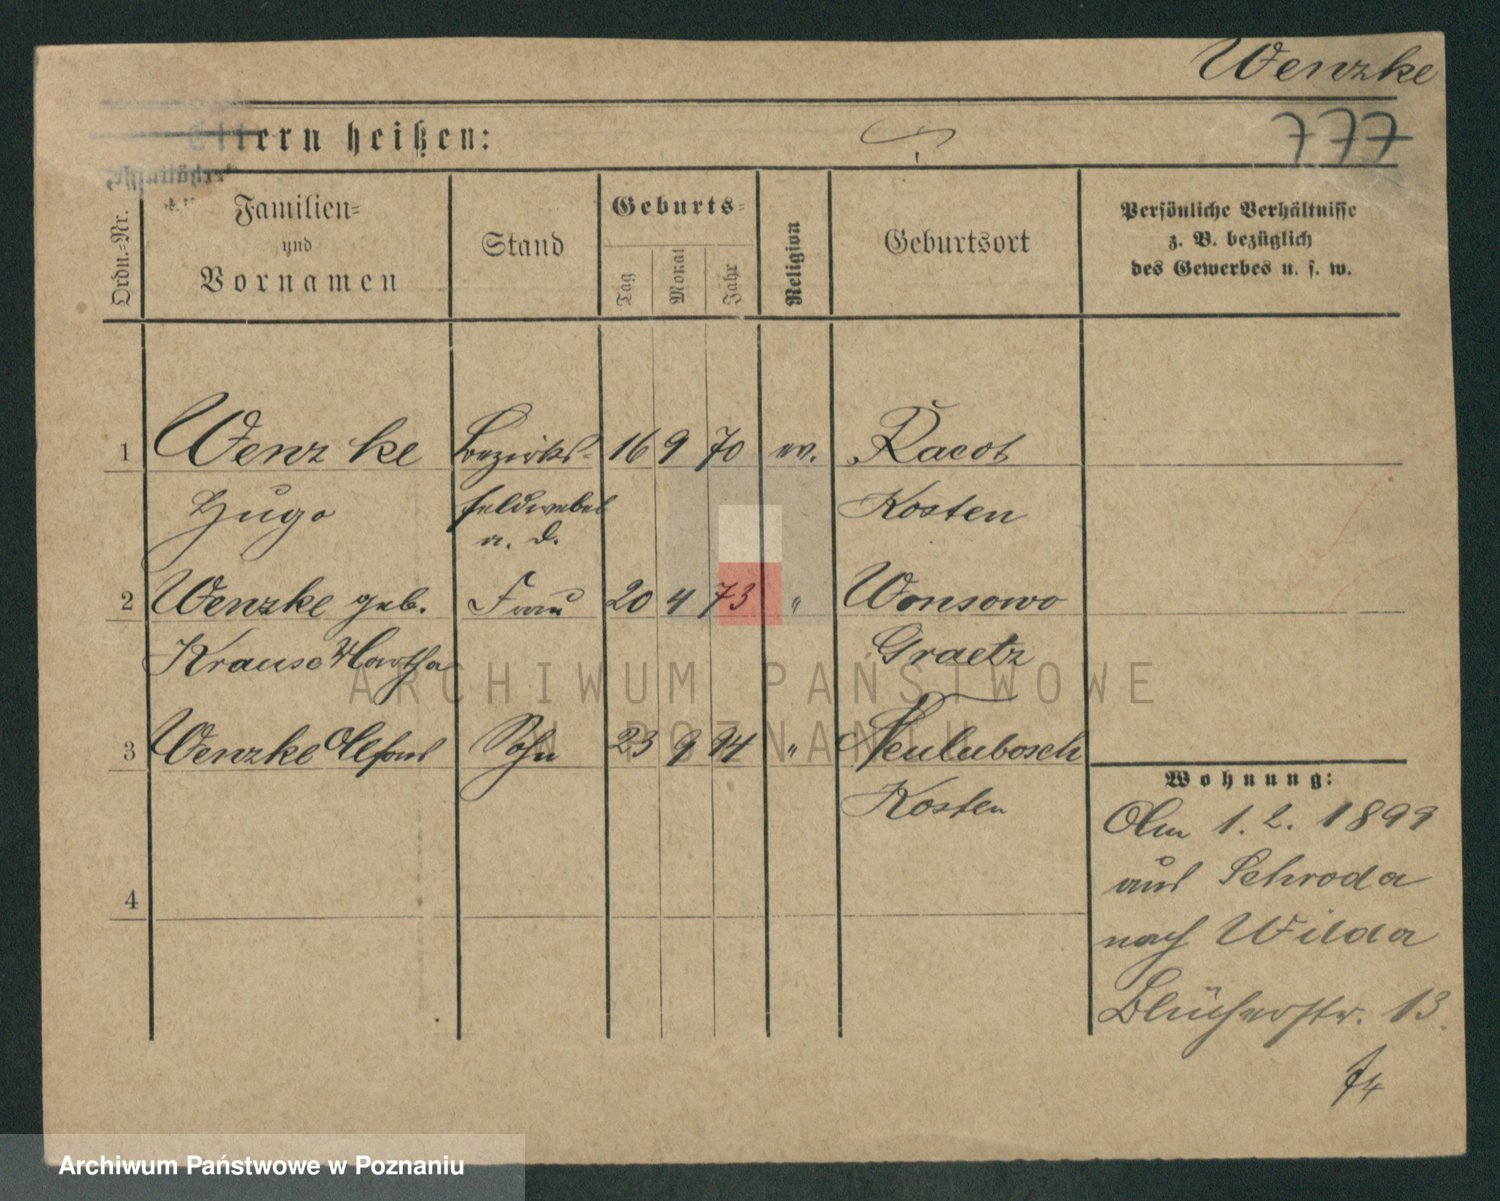 Wenzke
Eltern heißen:
777
Ordn.-Nr.
Familien-
und
Vornamen
Stand
Geburts-
Tag
Monat
Jahr
Religion
Geburtsort
Persönliche Verhältnisse
z. B. bezüglich
des Gewerbes u. s. w.
1 Wenzke Bezirks- 16 9 70 ev. Racot
Hugo feldwebel Kosten
a. D.
2 Wenzke geb. Frau 20 4 73 " Wonsowo
Krause Martha Graetz
3 Wenzke Alfons Sohn 23 9 94 " Neulubosch
Kosten
4
Wohnung:
Am 1. 2. 1899
aus Schroda
nach Wilda
Blücherstr. 13.
ARCHIWUM PAŃSTWOWE
W POZNANIU
Archiwum Państwowe w Poznaniu